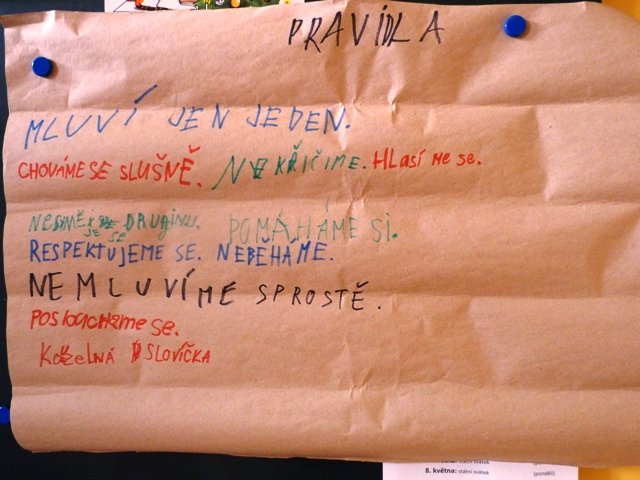 PRAVIDLA
MLUVÍ JEN JEDEN.
CHOVÁME SE SLUŠNĚ. NEKŘIČIME. HLASÍ ME SE.
DRUGINU. POMÁHÁME SI.
RESPEKTUJEME SE. NEBĚHÁME.
NEMLUVÍME SPROSTĚ.
POSLOUCHáME SE.
SLOVÍČKA
8. května: státní svátek
(pondělí)